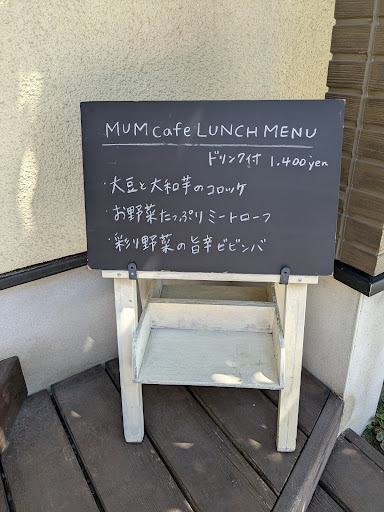 MUM Cafe LUNCH MENU
ドリンク付 1.400yen
・大豆と大和芋のコロッケ
・お野菜たっぷりミートローフ
・彩り野菜の旨辛ビビンバ